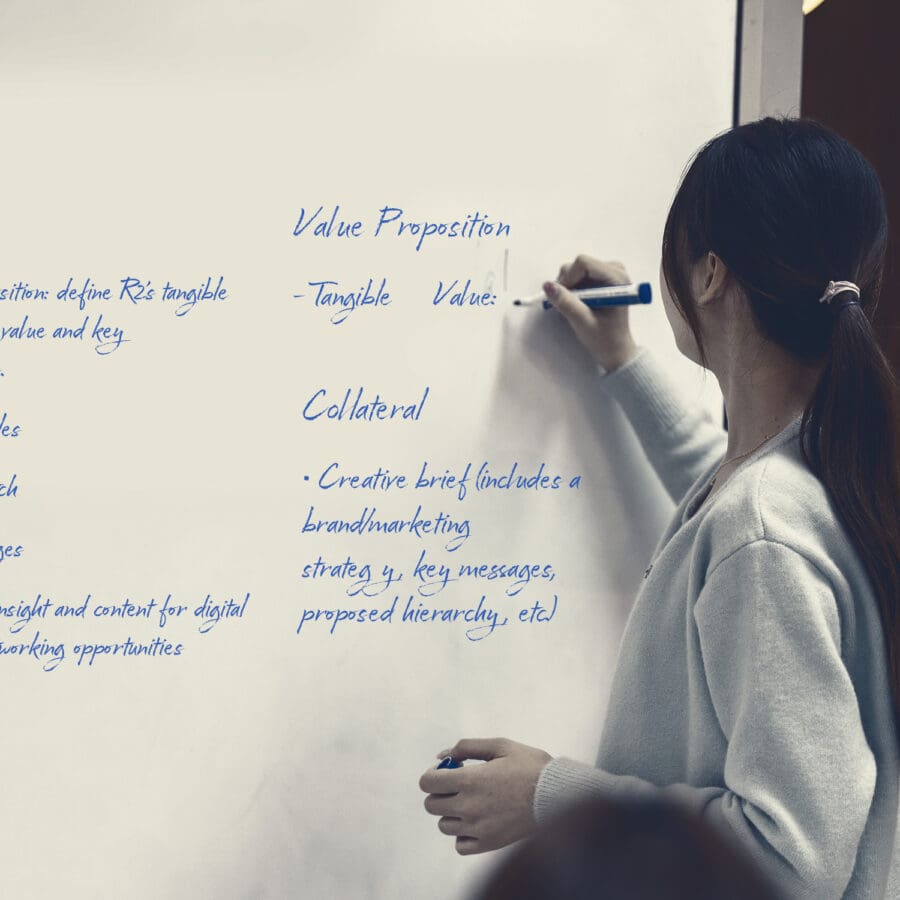 sition: define R2's tangible
value and key
les
ch
ges
nsight and content for digital
working opportunities
Value Proposition
- Tangible Value:
Collateral
• Creative brief (includes a
brand/marketing
strateg y, key messages,
proposed hierarchy, etc)